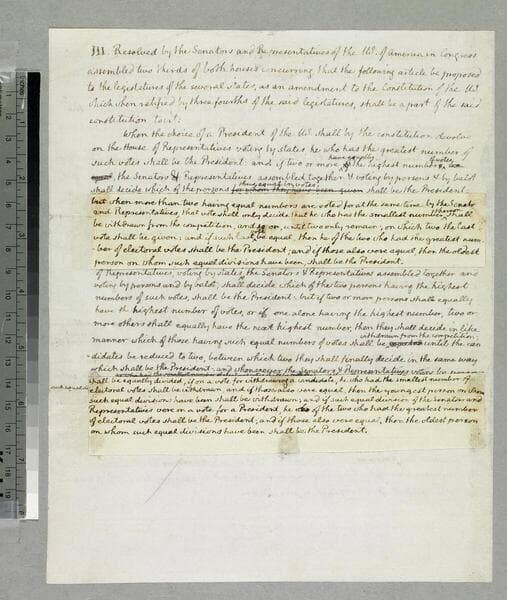 III. Resolved by the Senators and Representatives of the US. of America in Congress
assembled two thirds of both houses concurring that the following article be proposed
to the legislatures of the several states, as an amendment to the Constitution of the US.
which when ratified by three fourths of the said legislatures, shall be a part of the said
constitution towit:
When the choice of a President of the US. shall by the constitution devolve
on the House of Representatives voting by states he who has the greatest number of
such votes shall be the President: and if two or more have equally the highest number of votes
the Senators & Representatives assembled together & voting by persons & by ballot
shall decide which of the persons for whom they have been given shall be the President.
but when more than two having equal numbers are voted for at the same time by the Senators
and Representatives, that vote shall only decide that he who has the smallest number shall
be withdrawn from the competition, and so on, until two only remain; on which two the last
vote shall be given; and if such vote be equal, then he of the two who had the greatest num-
ber of electoral votes shall be the President; and if those also were equal, then the oldest
person on whom such equal divisions have been, shall be the President.
of Representatives, voting by states, the Senators & Representatives assembled together and
voting by persons and by ballot, shall decide which of the two persons having the highest
numbers of such votes, shall be the President; but if two or more persons shall equally
have the highest number of votes, or if one alone having the highest number, two or
more others shall equally have the next highest number, then they shall decide in like
manner which of those having such equal numbers of votes shall be withdrawn from the competition, until the can
didates be reduced to two, between which two they shall finally decide in the same way
which shall be the President: and whensoever the Senators & Representatives voting by
shall be equally divided, if on a vote for withdrawing a candidate, he who had the smallest number of
electoral votes shall be withdrawn, and if those also were equal, then the youngest person on whom
such equal divisions have been shall be withdrawn; and if such equal division of the Senators and
Representatives were on a vote for a President, he of the two who had the greatest number
of electoral votes shall be the President; and if those also were equal, then the oldest person
on whom such equal divisions have been shall be the President.